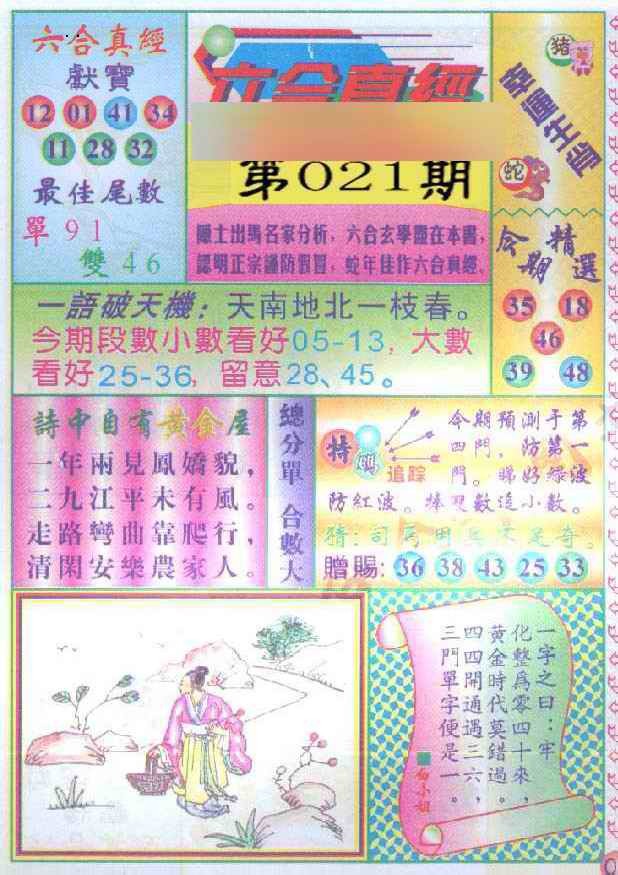 六合真經
獻寶
12 01 41 34
11 28 32
最佳尾數
單 91
雙 46
六合真經
第021期
隱士出馬名家分析，六合玄學盡在本書，
認明正宗謹防假冒，蛇年佳作六合真經。
豬
蛇
今期精選
35 18
46
39 48
一語破天機：天南地北一枝春。
今期段數小數看好05-13，大數
看好25-36，留意28、45。
詩中自有黃金屋
一年兩見鳳嬌貌，
二九江平未有風。
走路彎曲靠爬行，
清閑安樂農家人。
總分單 合數大
特碼
追踪
今期預測于第
四門，防第一
門。睇好綠波
防紅波。捧雙數追小數。
贈賜: 36 38 43 25 33
一字之曰：牢
化整為零四十來，
黃金時代莫錯過。
四四開通遇三六，
三門單字便是一。
白小姐